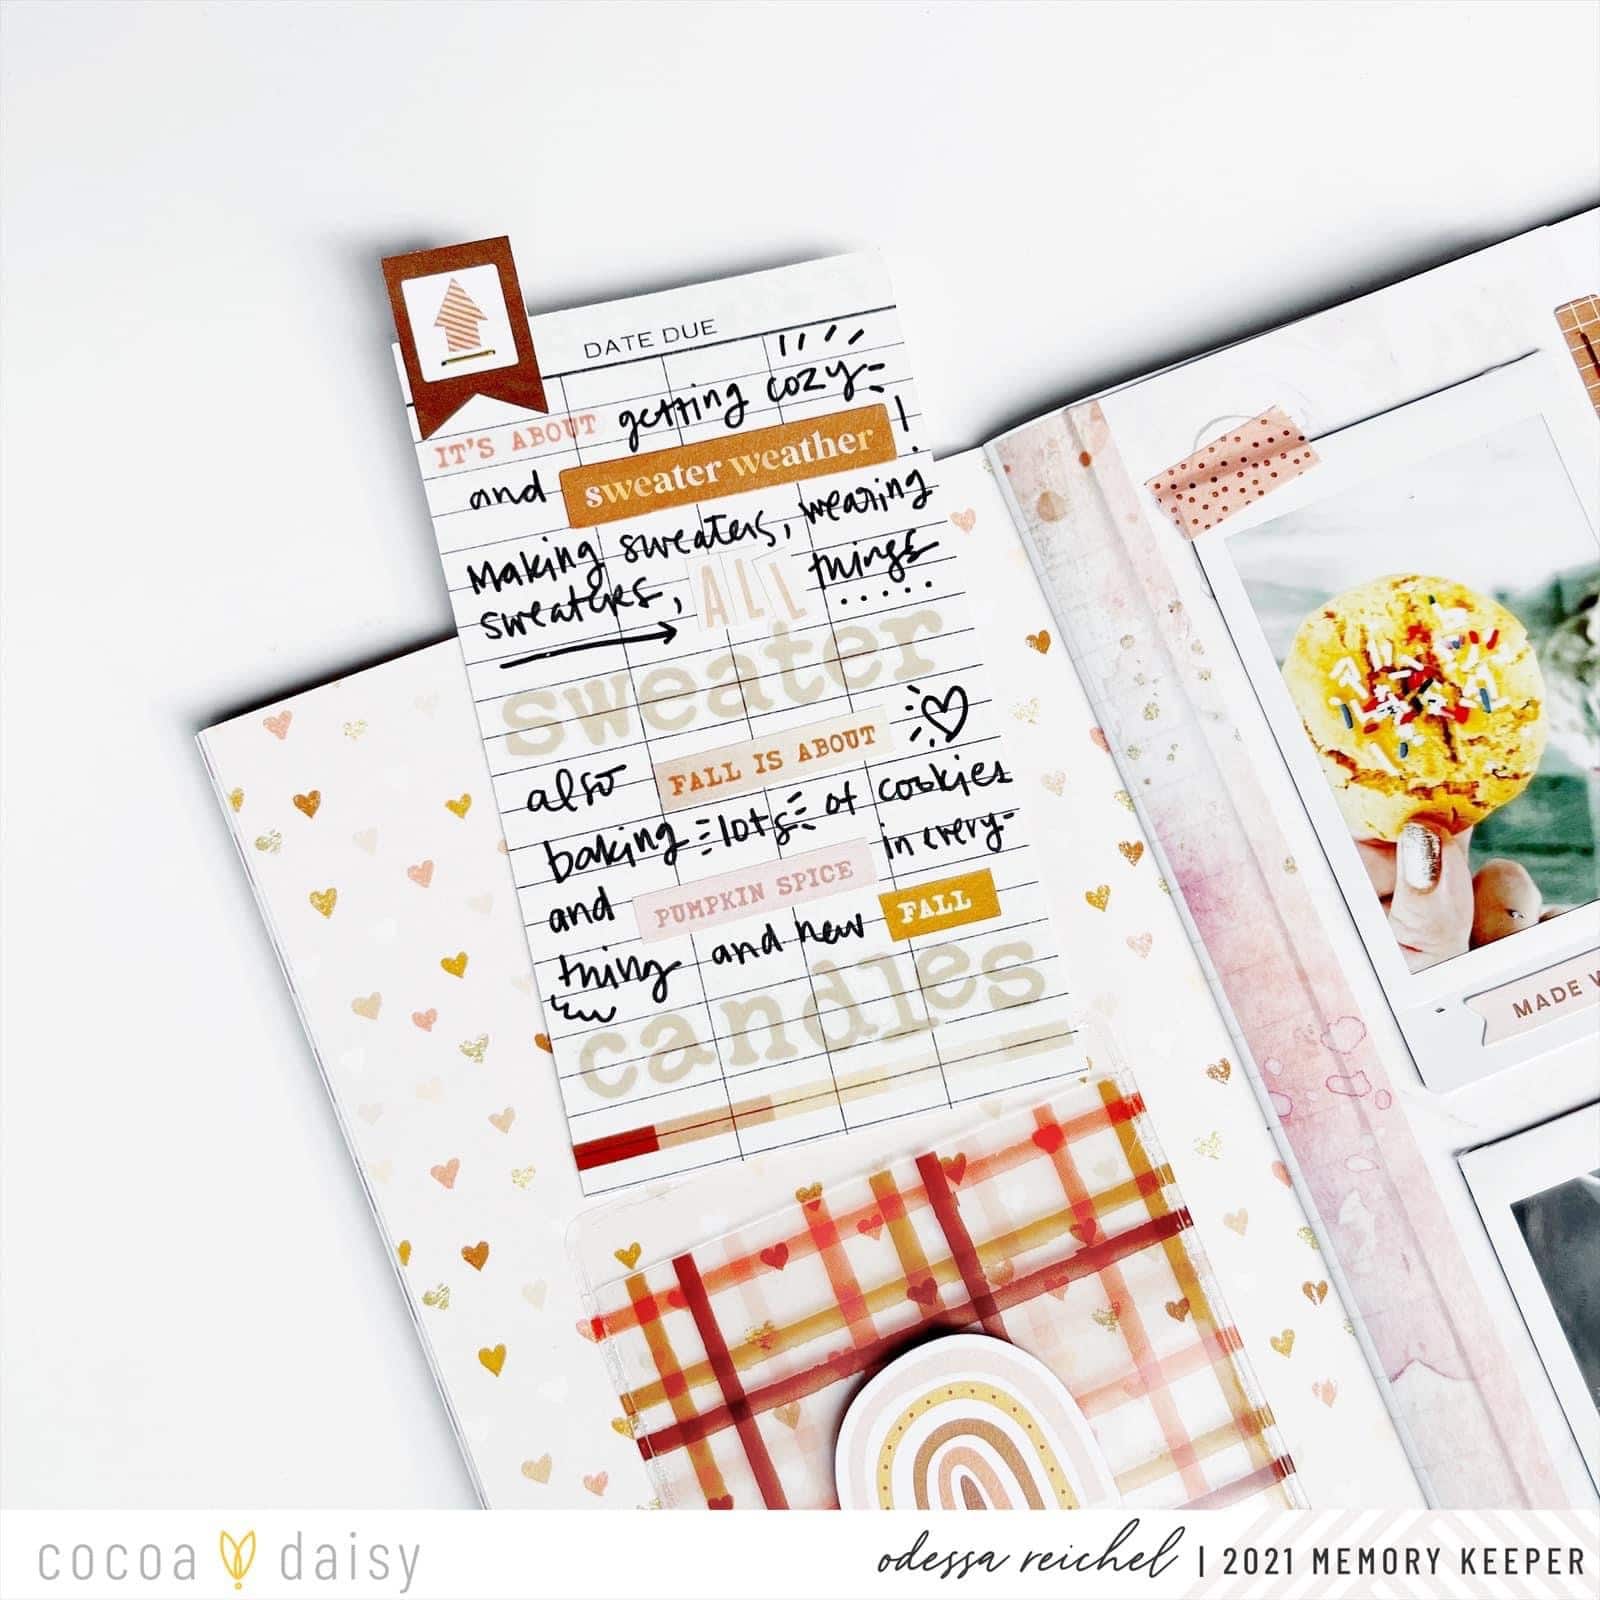 DATE DUE
IT'S ABOUT getting cozy
and sweater weather!
Making sweaters, wearing
sweaters, ALL things
sweater
also FALL IS ABOUT
baking lots of cookies
and PUMPKIN SPICE in every-
thing and new FALL
candles
MADE
cocoa daisy
odessa reichel | 2021 MEMORY KEEPER